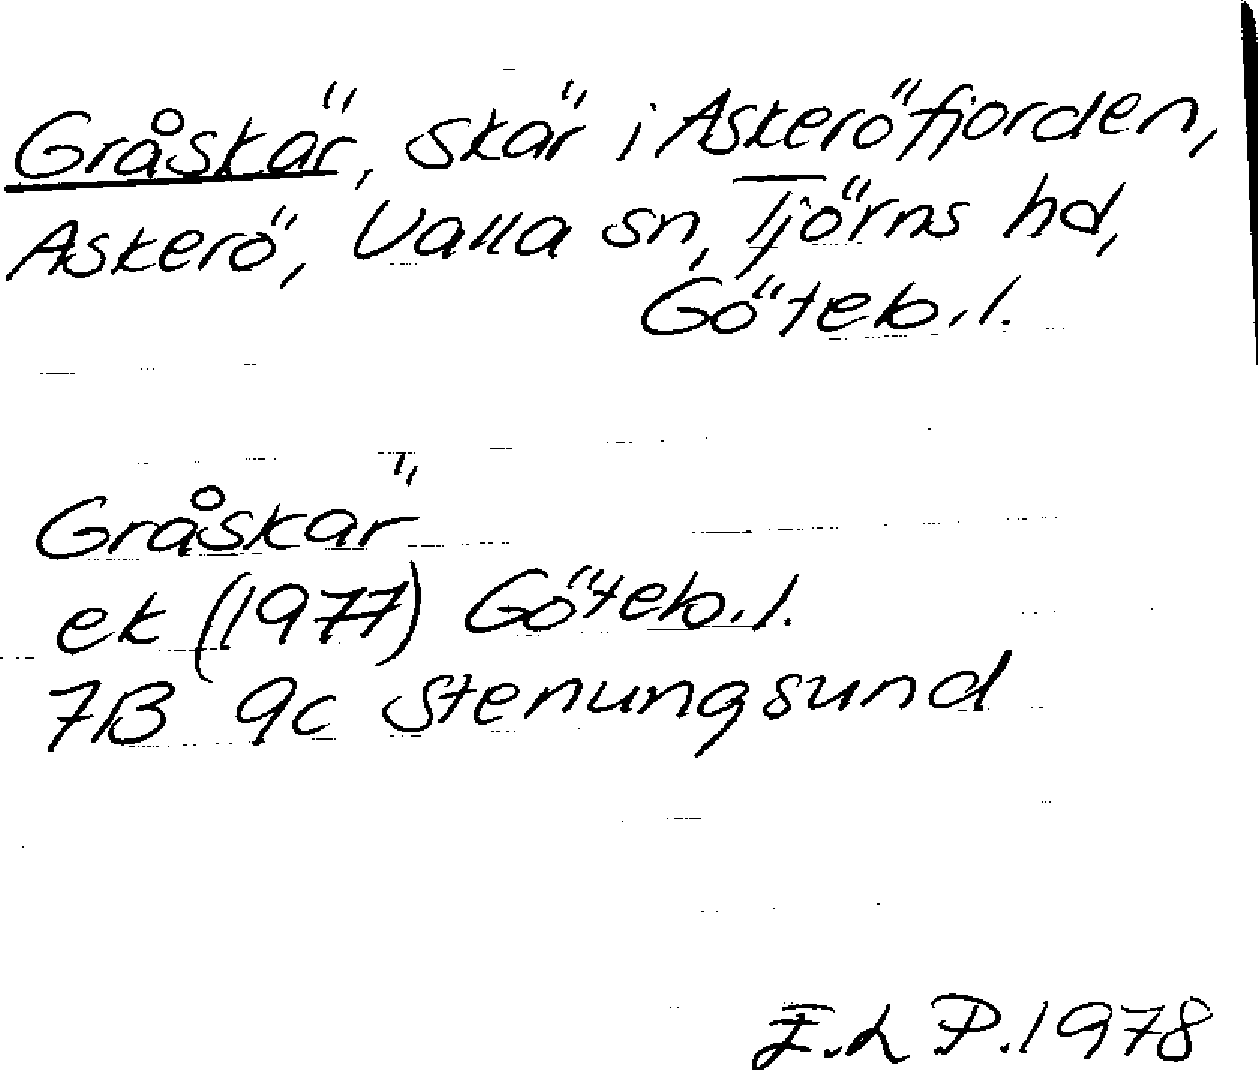 Gråskär, skär i Askeröfjorden,
Askerö, Valla sn, Tjörns hd,
Göteb. l.
Gråskär
ek (1977) Göteb. l.
7B 9c Stenungsund
E.L P. 1978